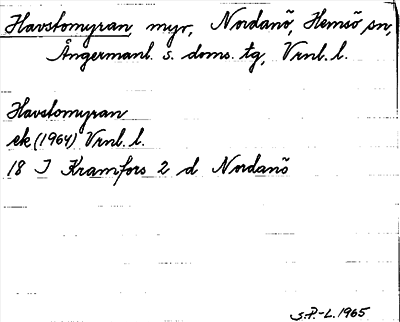 Havstomyran, myr, Nordanö, Hemsö sn,
Ångermanl. s. doms. tg, Vrnl. l.
Havstomyran
ek (1964) Vrnl. l.
18 J Kramfors 2 d Nordanö
S.P.-L. 1965